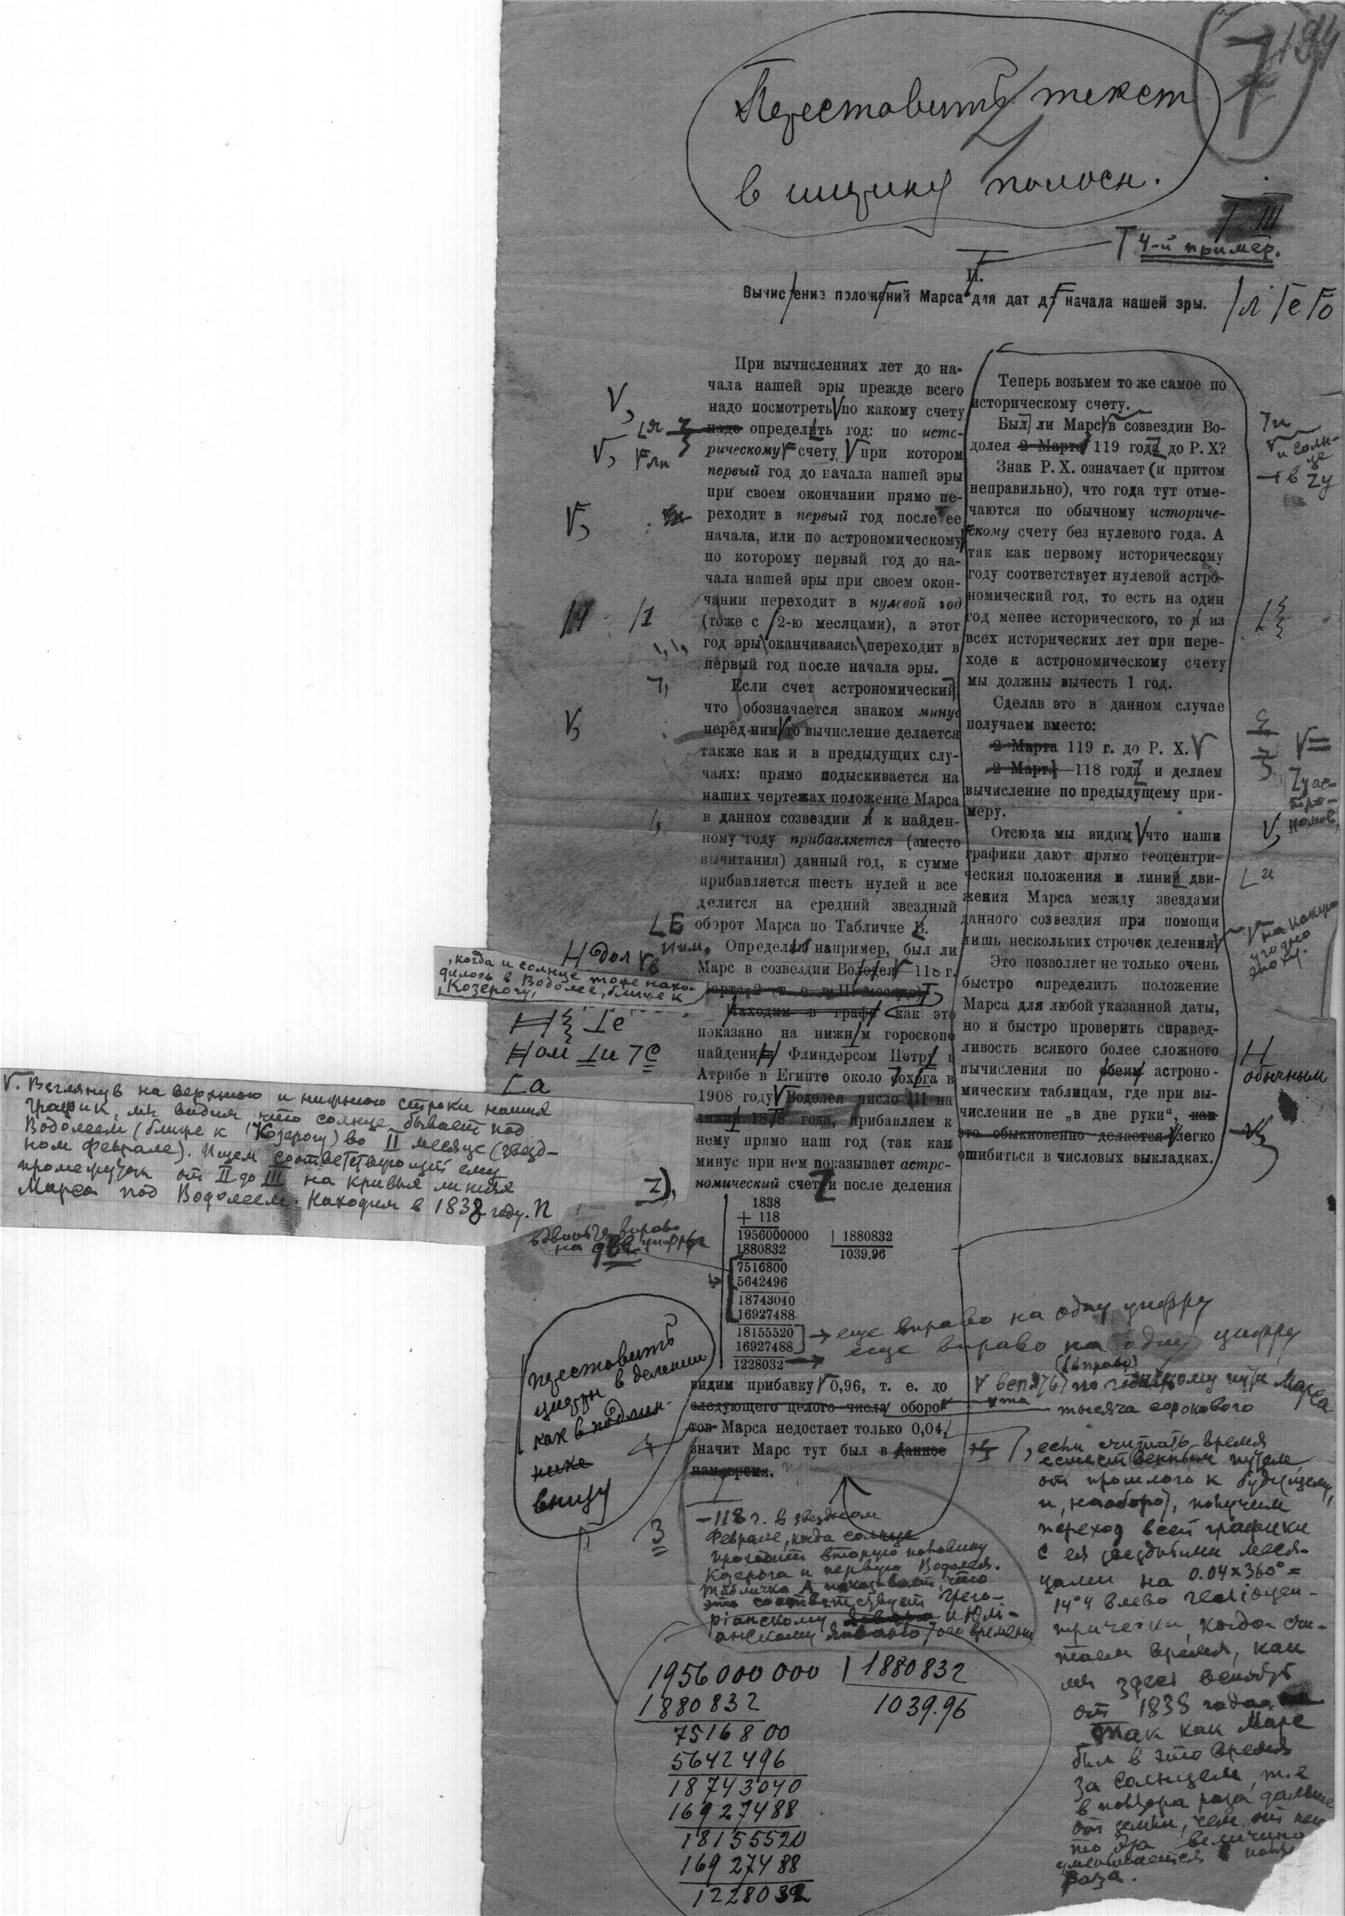 7
194
Переставить текст
в ширину полосы.
T III
4-й пример.
II.
Вычисление положений Марса для дат до начала нашей эры.
л е о
При вычислениях лет до на-
чала нашей эры прежде всего
надо посмотреть по какому счету
надо определить год: по исто-
рическому счету при котором
первый год до начала нашей эры
при своем окончании прямо пе-
реходит в первый год после ее
начала, или по астрономическому
по которому первый год до на-
чала нашей эры при своем окон-
чании переходит в нулевой год
(тоже с 2-ю месяцами), а этот
год эры оканчиваясь переходит в
первый год после начала эры.
Если счет астрономический
что обозначается знаком минус
перед ним то вычисление делается
также как и в предыдущих слу-
чаях: прямо подыскивается на
наших чертежах положение Марса
в данном созвездии и к найден-
ному году прибавляется (вместо
вычитания) данный год, к сумме
прибавляется шесть нулей и все
делится на средний звездный
оборот Марса по Табличке В.
Определим например, был ли
Марс в созвездии Водолея — 118 г.
Марта 2 (т. е. в III месяце)
Находим в графе как это
показано на нижнем гороскопе
найденном Флиндерсом Петри в
Атрибе в Египте около Сохага в
1908 году Водолея число III на
линии 1838 года, прибавляем к
нему прямо наш год (так как
минус при нем показывает астро-
номический счет и после деления
1838
+ 118
1956000000 | 1880832
1880832 1039.96
7516800
5642496
18743040
16927488
18155520
16927488
1228032
видим прибавку 0,96, т. е. до
следующего целого числа оборо-
тов Марса недостает только 0,04,
значит Марс тут был в данное
нам время.
Теперь возьмем то же самое по
историческому счету.
Был ли Марс в созвездии Во-
долея 2 Марта 119 года до Р. X?
Знак Р. X. означает (и притом
неправильно), что года тут отме-
чаются по обычному историче-
скому счету без нулевого года. А
так как первому историческому
году соответствует нулевой астро-
номический год, то есть на один
год менее исторического, то и из
всех исторических лет при пере-
ходе к астрономическому счету
мы должны вычесть 1 год.
Сделав это в данном случае
получаем вместо:
2 Марта 119 г. до Р. X.
2 Марта —118 года и делаем
вычисление по предыдущему при-
меру.
Отсюда мы видим что наши
графики дают прямо геоцентри-
ческия положения и линий дви-
жения Марса между звездами
данного созвездия при помощи
лишь нескольких строчек деления
Это позволяет не только очень
быстро определить положение
Марса для любой указанной даты,
но и быстро проверить справед-
ливость всякого более сложного
вычисления по обеим астроно-
мическим таблицам, где при вы-
числении не „в две руки“, как
это обыкновенно делается легко
ошибиться в числовых выкладках.
и солн-
це
в
на какую
угодно
эпоху.
обычным
, когда и солнце тоже нахо-
дилось в Водолее, ближе к
Козерогу,
Взглянув на верхнюю и нижнюю строки нашя
график, мы видим что солнце бывает под
Водолеем (ближе к Козерогу) во II месяце (звезд-
ном феврале). Ищем соответствующий ему
промежуток от II до III на кривыя линия
Марса под Водолеем. Находим в 1838 году.
вдвинуть вправо
на две цифры
еще вправо на одну цифру
еще вправо на одну цифру
переставить
цифры в делении
как в подлин-
нике
внизу
(вправо)
Марса
тысяча сорокового
, если считать время
естественным путем,
от прошлого к будущему,
и, наоборот, получим
переход всей графики
с ея звездными меся-
цами на 0.04×360°=
14°4 влево гелиоцен-
трически, когда счи-
таем время, как
мы здесь
от 1838 года
так как Марс
был в это время
за солнцем, т.е
в полтора раза дальше
от земли, чем от
то эта величина
уменьшается в
раза.
—118 г. в звездном
Феврале, когда солнце
проходит вторую половину
Козерога и первую Водолея.
Табличка А показывает, что
это соответствует Грего-
рианскому и Юли-
анскому того времени
1956000000 | 1880832
1880832 1039.96
7516800
5642496
18743040
16927488
18155520
16927488
1228032